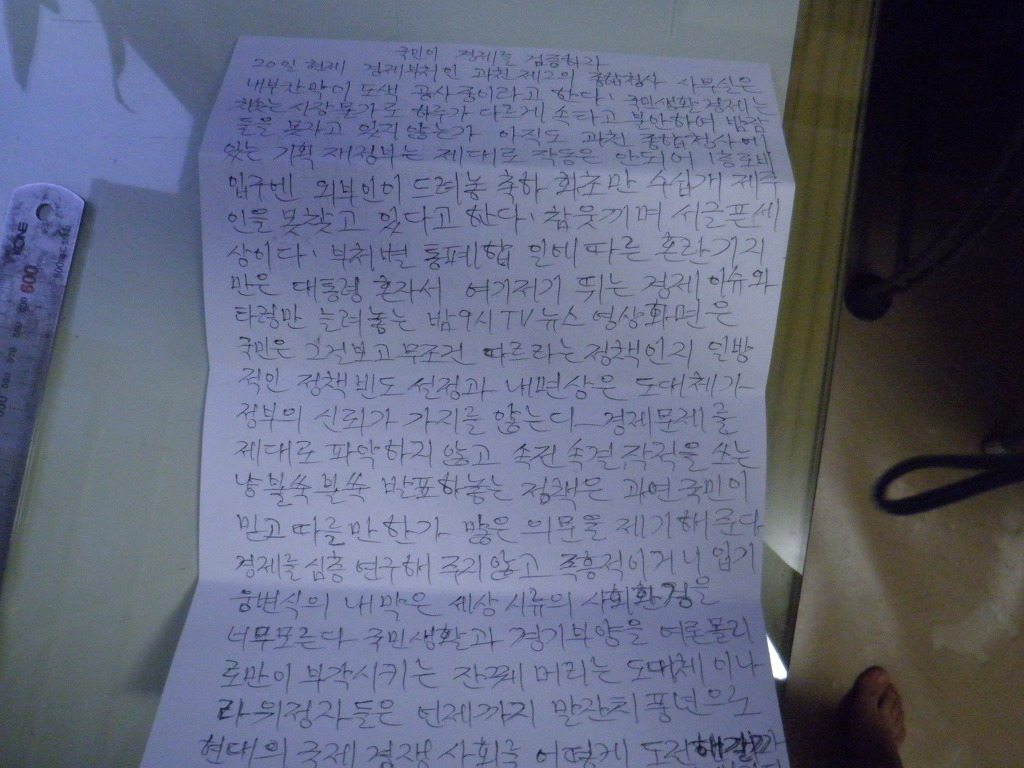 국민이 경제를 검증하자
20일 현재 경제부처인 과천 제2의 종합청사 사무실은
내부칸막이 도색 공사중이라고 한다. 국민생활 경제는
치솟는 시장물가로 하루가 다르게 속타고 불안하여 밤잠
들을 못자고 있지 않는가 아직도 과천 종합청사에
있는 기획 재정부는 제대로 작동은 안되어 1층로비
입구엔 외부인이 드려놓 축하 화초만 수십개 제주
인을 못찾고 있다고 한다. 참웃기며 서글픈세
상이다. 부처별 통폐합 일에 따른 혼란기지
만은 대통령 혼자서 여기저기 뛰는 경제 이슈와
타령만 늘려놓는 밤9시 TV뉴스 영상화면은
국민은 그것보고 무조건 따르라는 정책인지 일방
적인 정책 빈도 설정과 내편상은 도대체가
정부의 신뢰가 가지를 않는다 경제문제를
제대로 파악하지 않고 속전속결 작전을 쓰는
냥 불쑥불쑥 발표하놓는 정책은 과연 국민이
믿고 따를만 한가 많은 의문을 제기해 준다
경제를 심층 연구해 주지 않고 즉흥적이거나 임기
응변식의 내막은 세상 시류의 사회환경을
너무모른다 국민생활과 경기부양을 여론몰리
로만이 부각시키는 잔꾀 머리는 도대체 이나
라 위정자들은 언제까지 말잔치 풍년으로
현대의 국제 경쟁 사회를 어떻게 도전해갈까
600